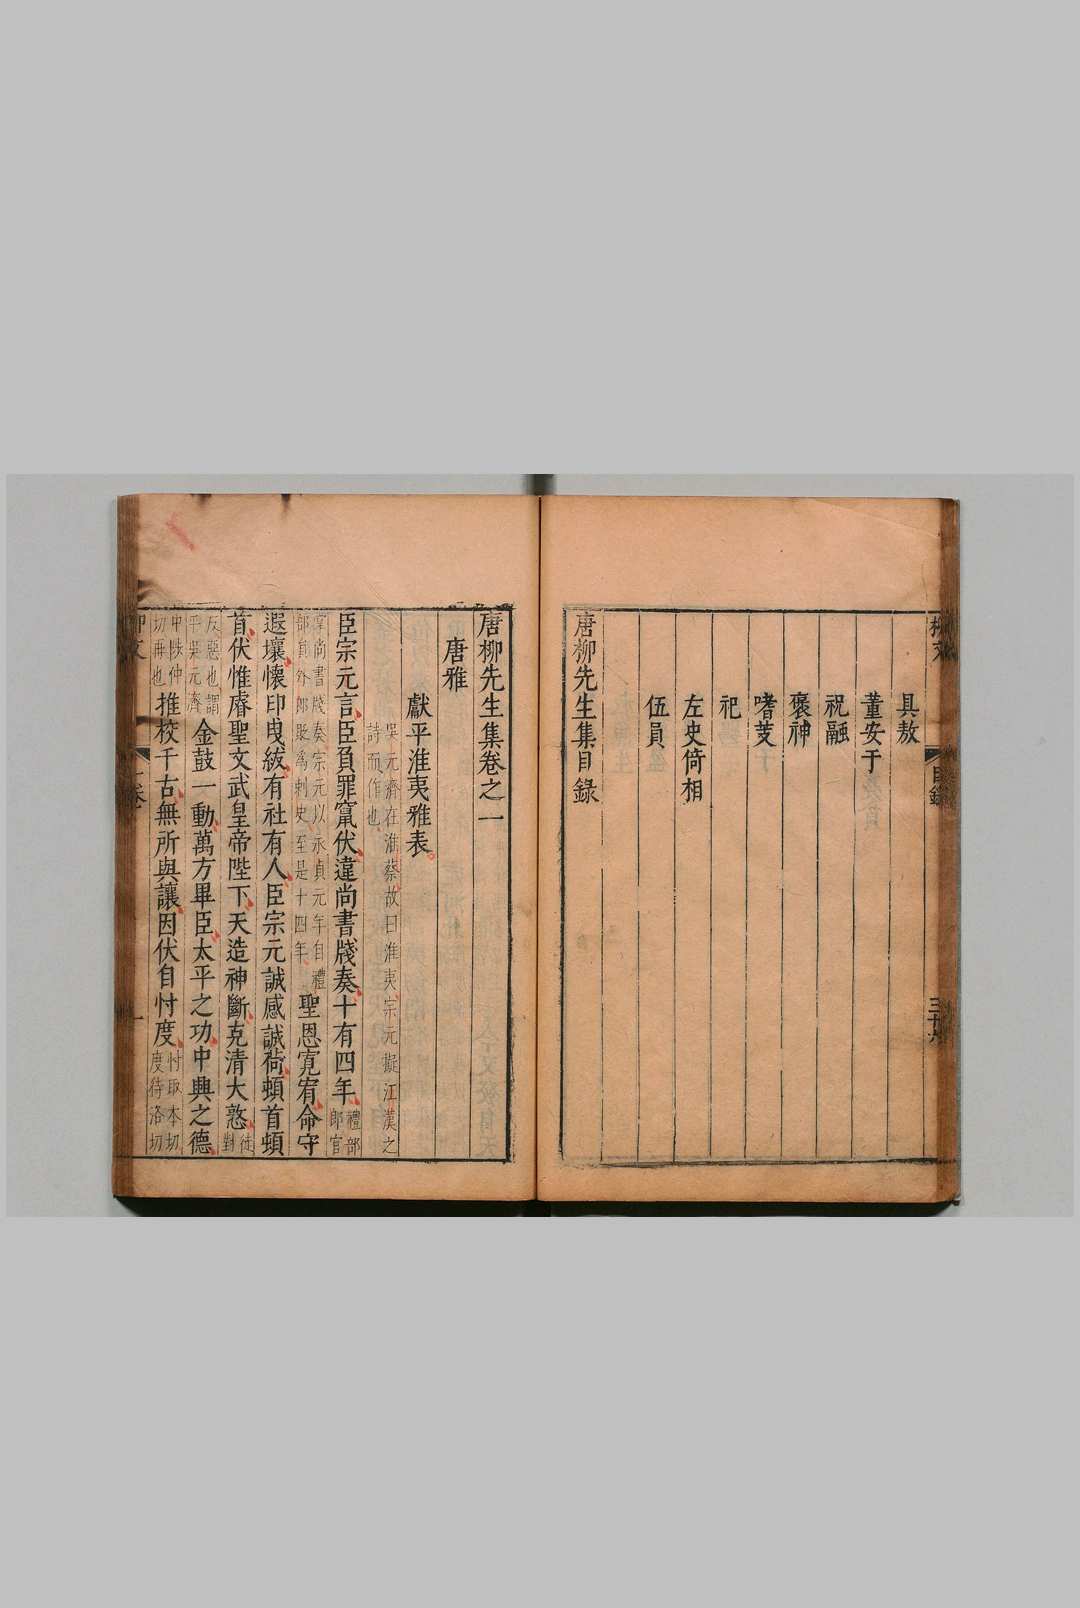 具敖
董安于
祝融
褒神
嗜芰
祀
左史倚相
伍員
唐柳先生集目錄
唐柳先生集卷之一
唐雅
獻平淮夷雅表
吳元濟在淮蔡故曰淮夷宗元擬江漢之
詩而作也
臣宗元言臣負罪竄伏違尚書牋奏十有四年
禮部
郎官
掌尚書牋奏宗元以永貞元年自禮
部員外郎貶為刺史至是十四年
聖恩寛宥命守
遐壤懷印曳紱有社有人臣宗元誠感誠荷頓首頓
首伏惟睿聖文武皇帝陛下天造神斷克清大憝
徒
對
反惡也謂
平吳元濟
金鼓一動萬方畢臣太平之功中興之德
中陟仲
切再也
推校千古無所與讓因伏自忖度
忖取本切
度待洛切